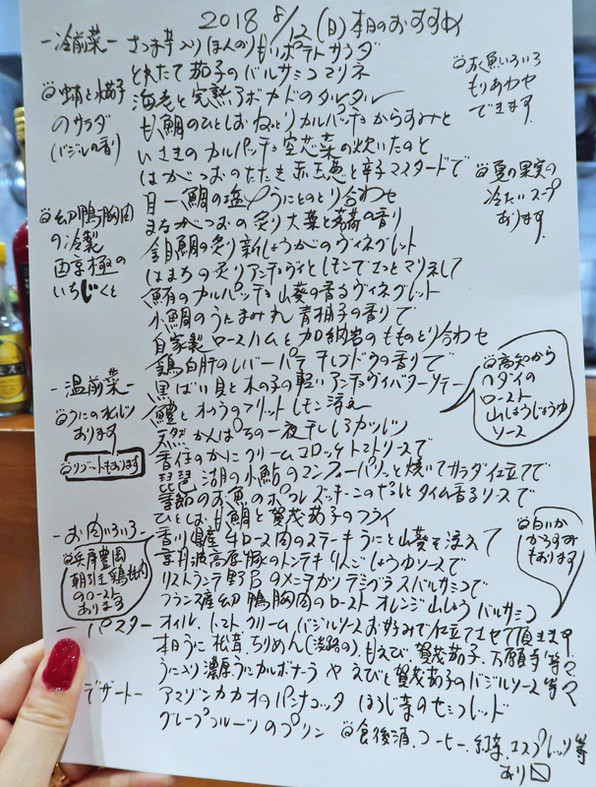 2018 8/12 (日) 本日のおすすめ
-冷前菜- さつま芋入りほんのり甘いポテトサラダ
とれたて茄子のバルサミコマリネ
海老と完熟アボカドのタルタル
甘鯛のひとしおねっとりカルパッチョからすみと
いさきのカルパッチョ空芯菜の炊いたのと
はがつおのたたき赤玉葱と辛子マスタードで
目一鯛の塩〆うにとのとり合わせ
まながつおの炙り大葉と茗荷の香り
金目鯛の炙り新しょうがのヴィネグレット
はまちの炙りアンチョヴィとレモンでさっとマリネして
鮪のカルパッチョ山葵の香るヴィネグレット
小鯛のうにまみれ青柚子の香りで
自家製ロースハムと加納岩のもものとり合わせ
鶏白肝のレバーパテ干しブドウの香りで
蛸と水茄子
のサラダ
(バジルの香り)
幼鴨胸肉
の冷製
西京極の
いちじくと
お魚いろいろ
もりあわせ
できます。
夏の果実の
冷たいスープ
あります。
-温前菜- 黒ばい貝と木の子の軽いアンチョヴィバターソテー
鱧とオクラのフリットレモン添え
天然かんぱちの一夜干しカツレツ
香住のかにクリームコロッケトマトソースで
琵琶湖の小鮎のマンフーパリッと焼いてサラダ仕立てで
季節のお魚のポワレズッキーニのせタイム香るソースで
ひとしお甘鯛と賀茂茄子のフライ
うにの水ムリ
あります
リゾットもあります
高知から
ハタイの
ロースト
山しょうじょうゆ
ソース
-お肉いろいろ- 香川県産牛ロース肉のステーキうにと山葵を添えて
京丹波高原豚のトンテキりんごしょうゆソースで
リストランテ野呂のメンチカツデミグラスバルサミコで
フランス産幼鴨胸肉のローストオレンジ山しょうバルサミコ
兵庫豊岡
朝引き鶏もも肉
のロースト
あります
白いか
からすみ
もあります
-パスタ- オイル、トマト、クリーム、バジルソースお好みで仕立てさせて頂きます
本日うに、松茸、ちりめん(淡路の)、甘えび、賀茂茄子、万願寺等々
うに入り濃厚うにカルボナーラやえびと賀茂茄子のバジルソース等々
デザート- アマゾンカカオのパンナコッタ ほうじ茶のセミフレッド
グレープフルーツのプリン 食後酒、コーヒー、紅茶、エスプレッソ等
あり〼